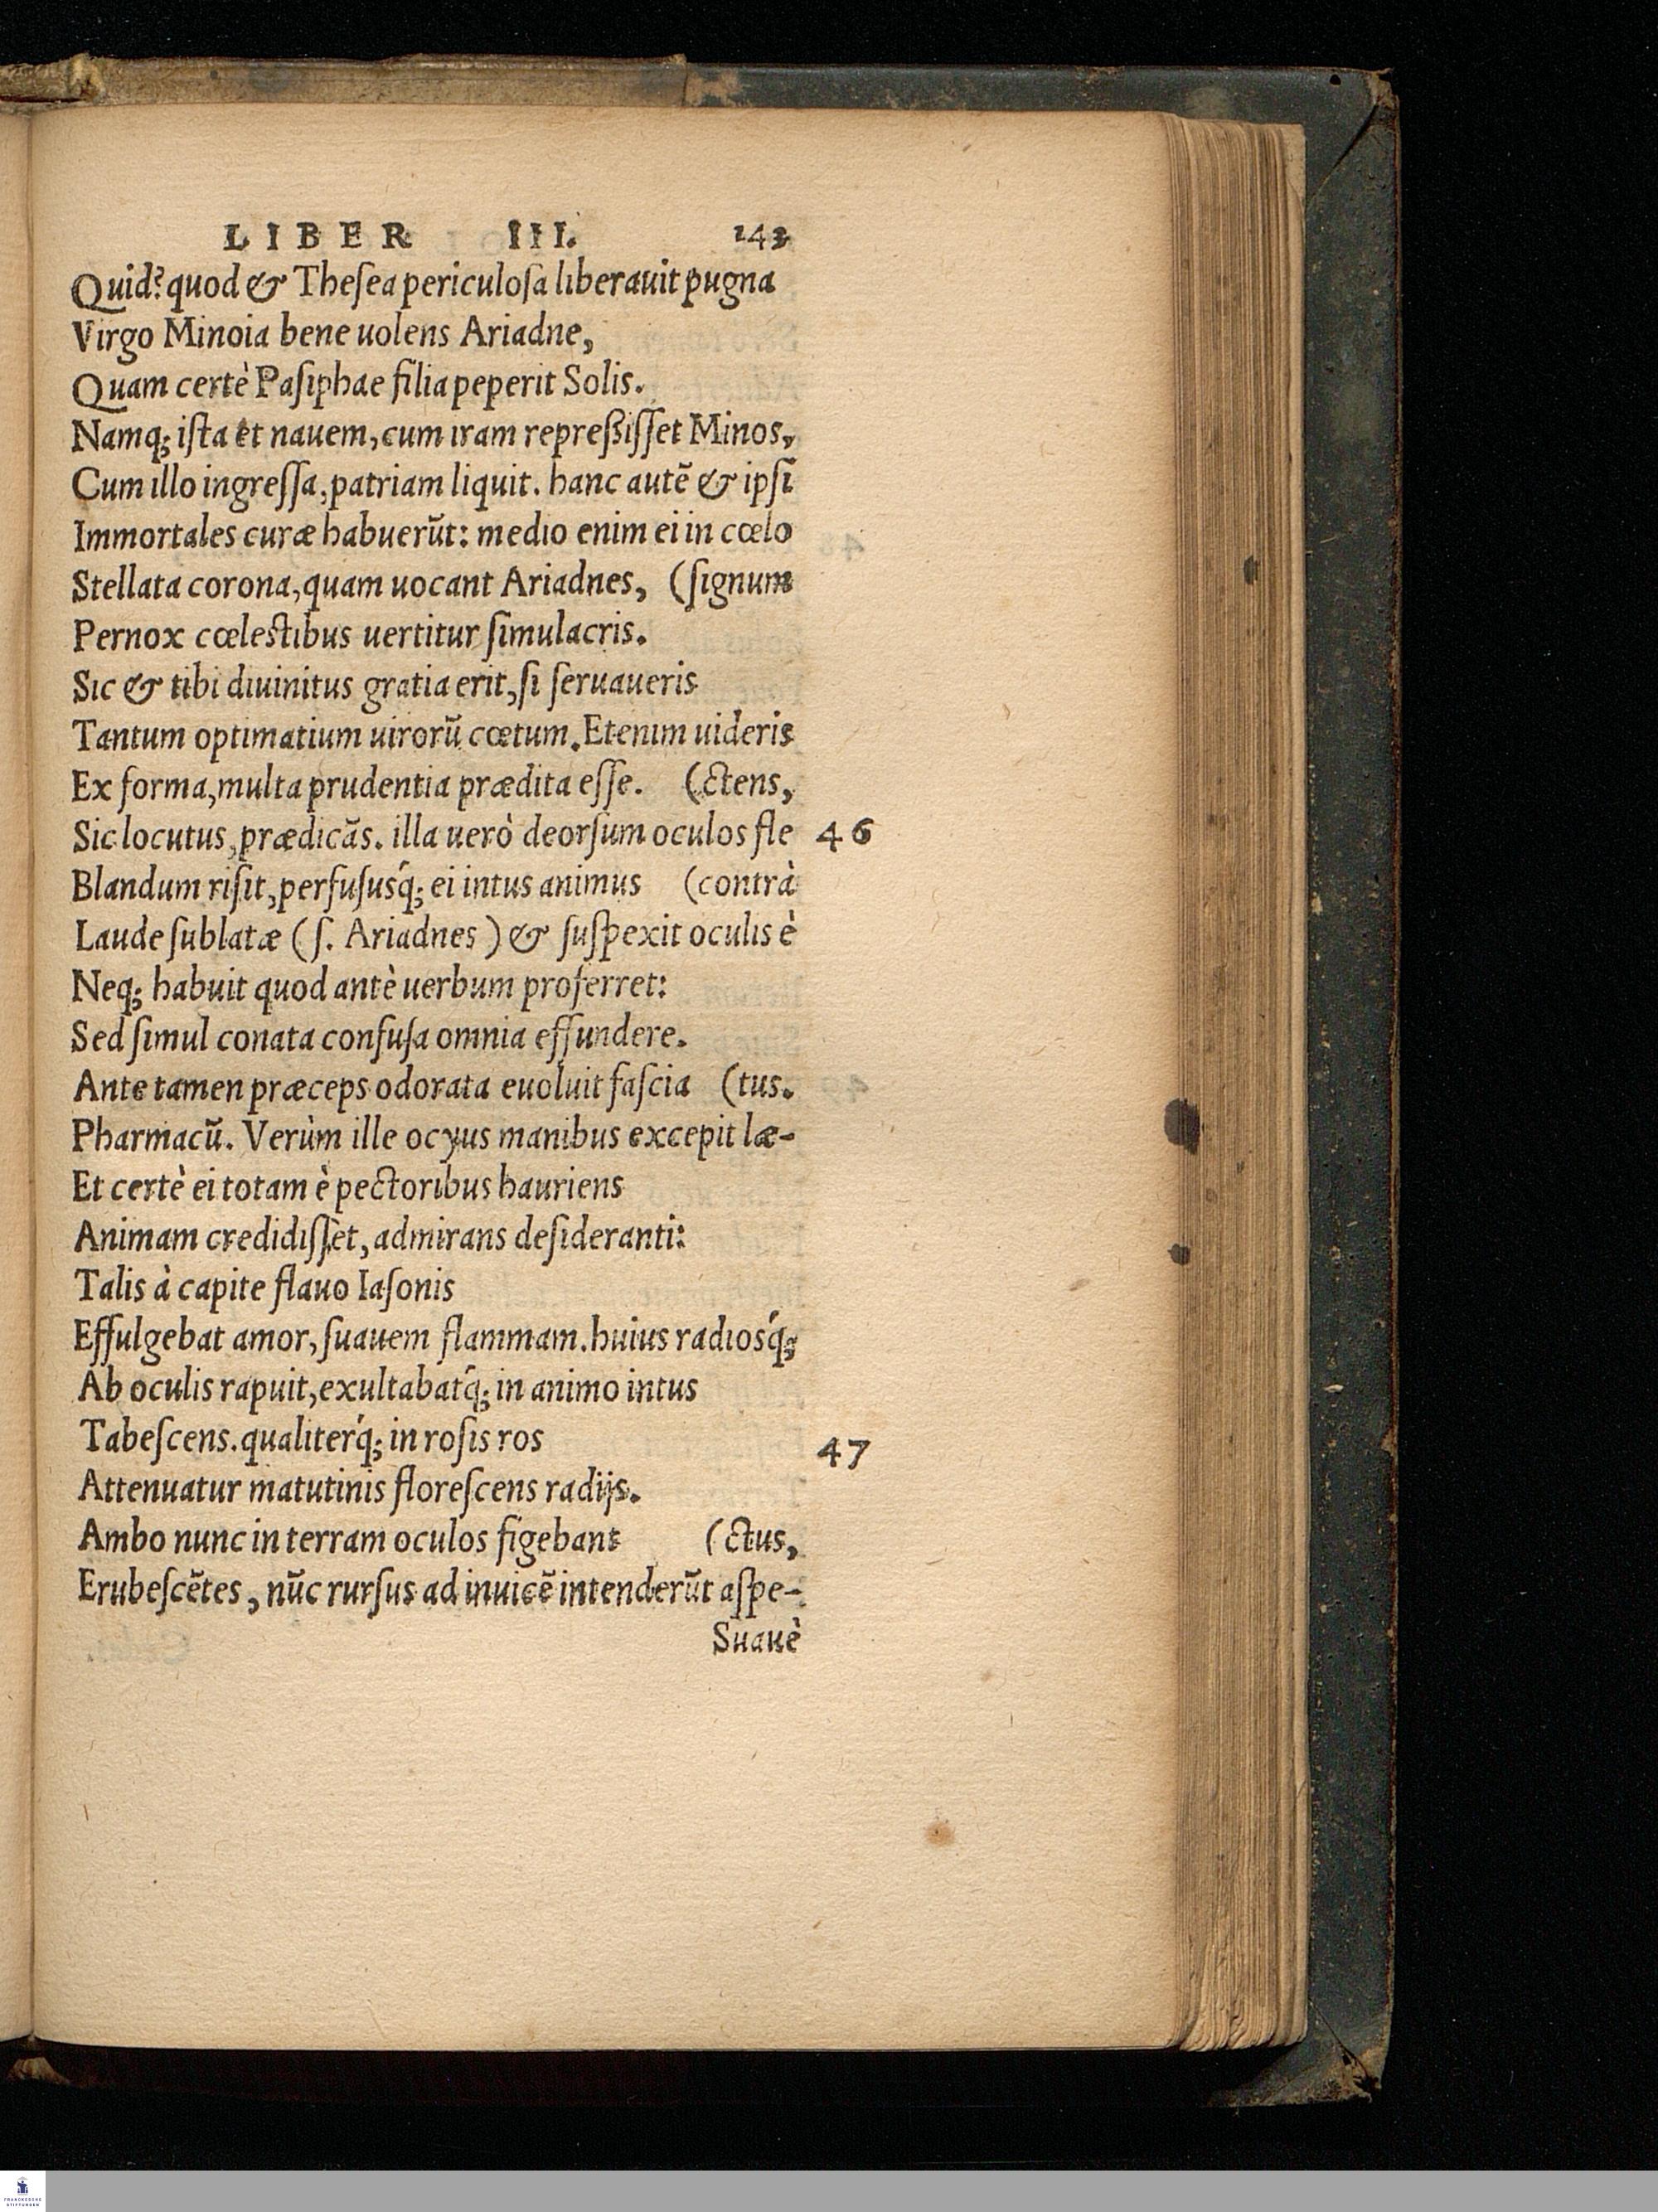 LIBER III. 143
Quid? quod & Theſea periculoſa liberauit pugna
Virgo Minoia bene uolens Ariadne,
Quam certè Paſiphae filia peperit Solis.
Namq; iſta et nauem, cum iram repreßiſſet Minos,
Cum illo ingreſſa, patriam liquit. hanc autē & ipſi
Immortales curæ habuerūt: medio enim ei in cœlo
Stellata corona, quam uocant Ariadnes, (ſignum
Pernox cœleſtibus uertitur ſimulacris.
Sic & tibi diuinitus gratia erit, ſi ſeruaueris
Tantum optimatium uirorū cœtum. Etenim uideris
Ex forma, multa prudentia prædita eſſe. (ctens,
Sic locutus, prædicãs. illa uerò deorſum oculos fle 46
Blandum riſit, perfuſusq́; ei intus animus (contrà
Laude ſublatæ (ſ. Ariadnes) & ſuſpexit oculis è
Neq; habuit quod antè uerbum proferret:
Sed ſimul conata confuſa omnia effundere.
Ante tamen præceps odorata euoluit faſcia (tus.
Pharmacū. Verùm ille ocyus manibus excepit læ-
Et certè ei totam è pectoribus hauriens
Animam credidiſſet, admirans deſideranti:
Talis à capite flauo Iaſonis
Effulgebat amor, ſuauem flammam. huius radiosq́;
Ab oculis rapuit, exultabatq́; in animo intus
Tabeſcens. qualiterq́; in roſis ros 47
Attenuatur matutinis floreſcens radijs.
Ambo nunc in terram oculos figebant (ctus,
Erubeſcētes, nūc rurſus ad inuicē intenderūt aſpe-
Suauè
FRANCKESCHE
STIFTUNGEN